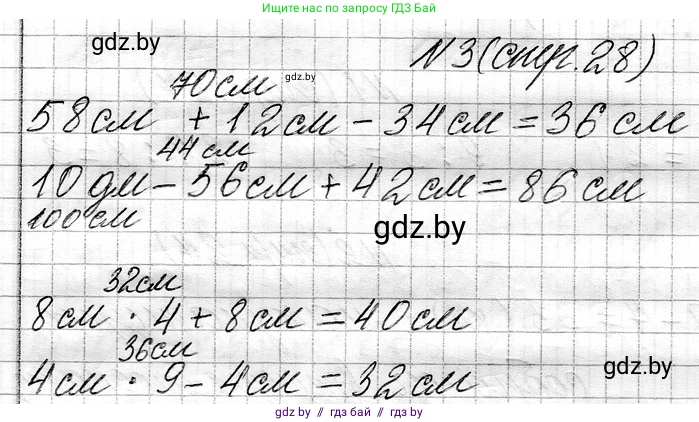 Ищите нас по запросу ГДЗ Бай
gdz.by
N3(стр.28)
70см
gdz.by
58см + 12см - 34см = 36см
44см
10дм - 56см + 42см = 86см
100см
gdz.by
32см
8см · 4 + 8см = 40см
36см
gdz.by
4см · 9 - 4см = 32см
gdz.by // гдз бай // гдз by